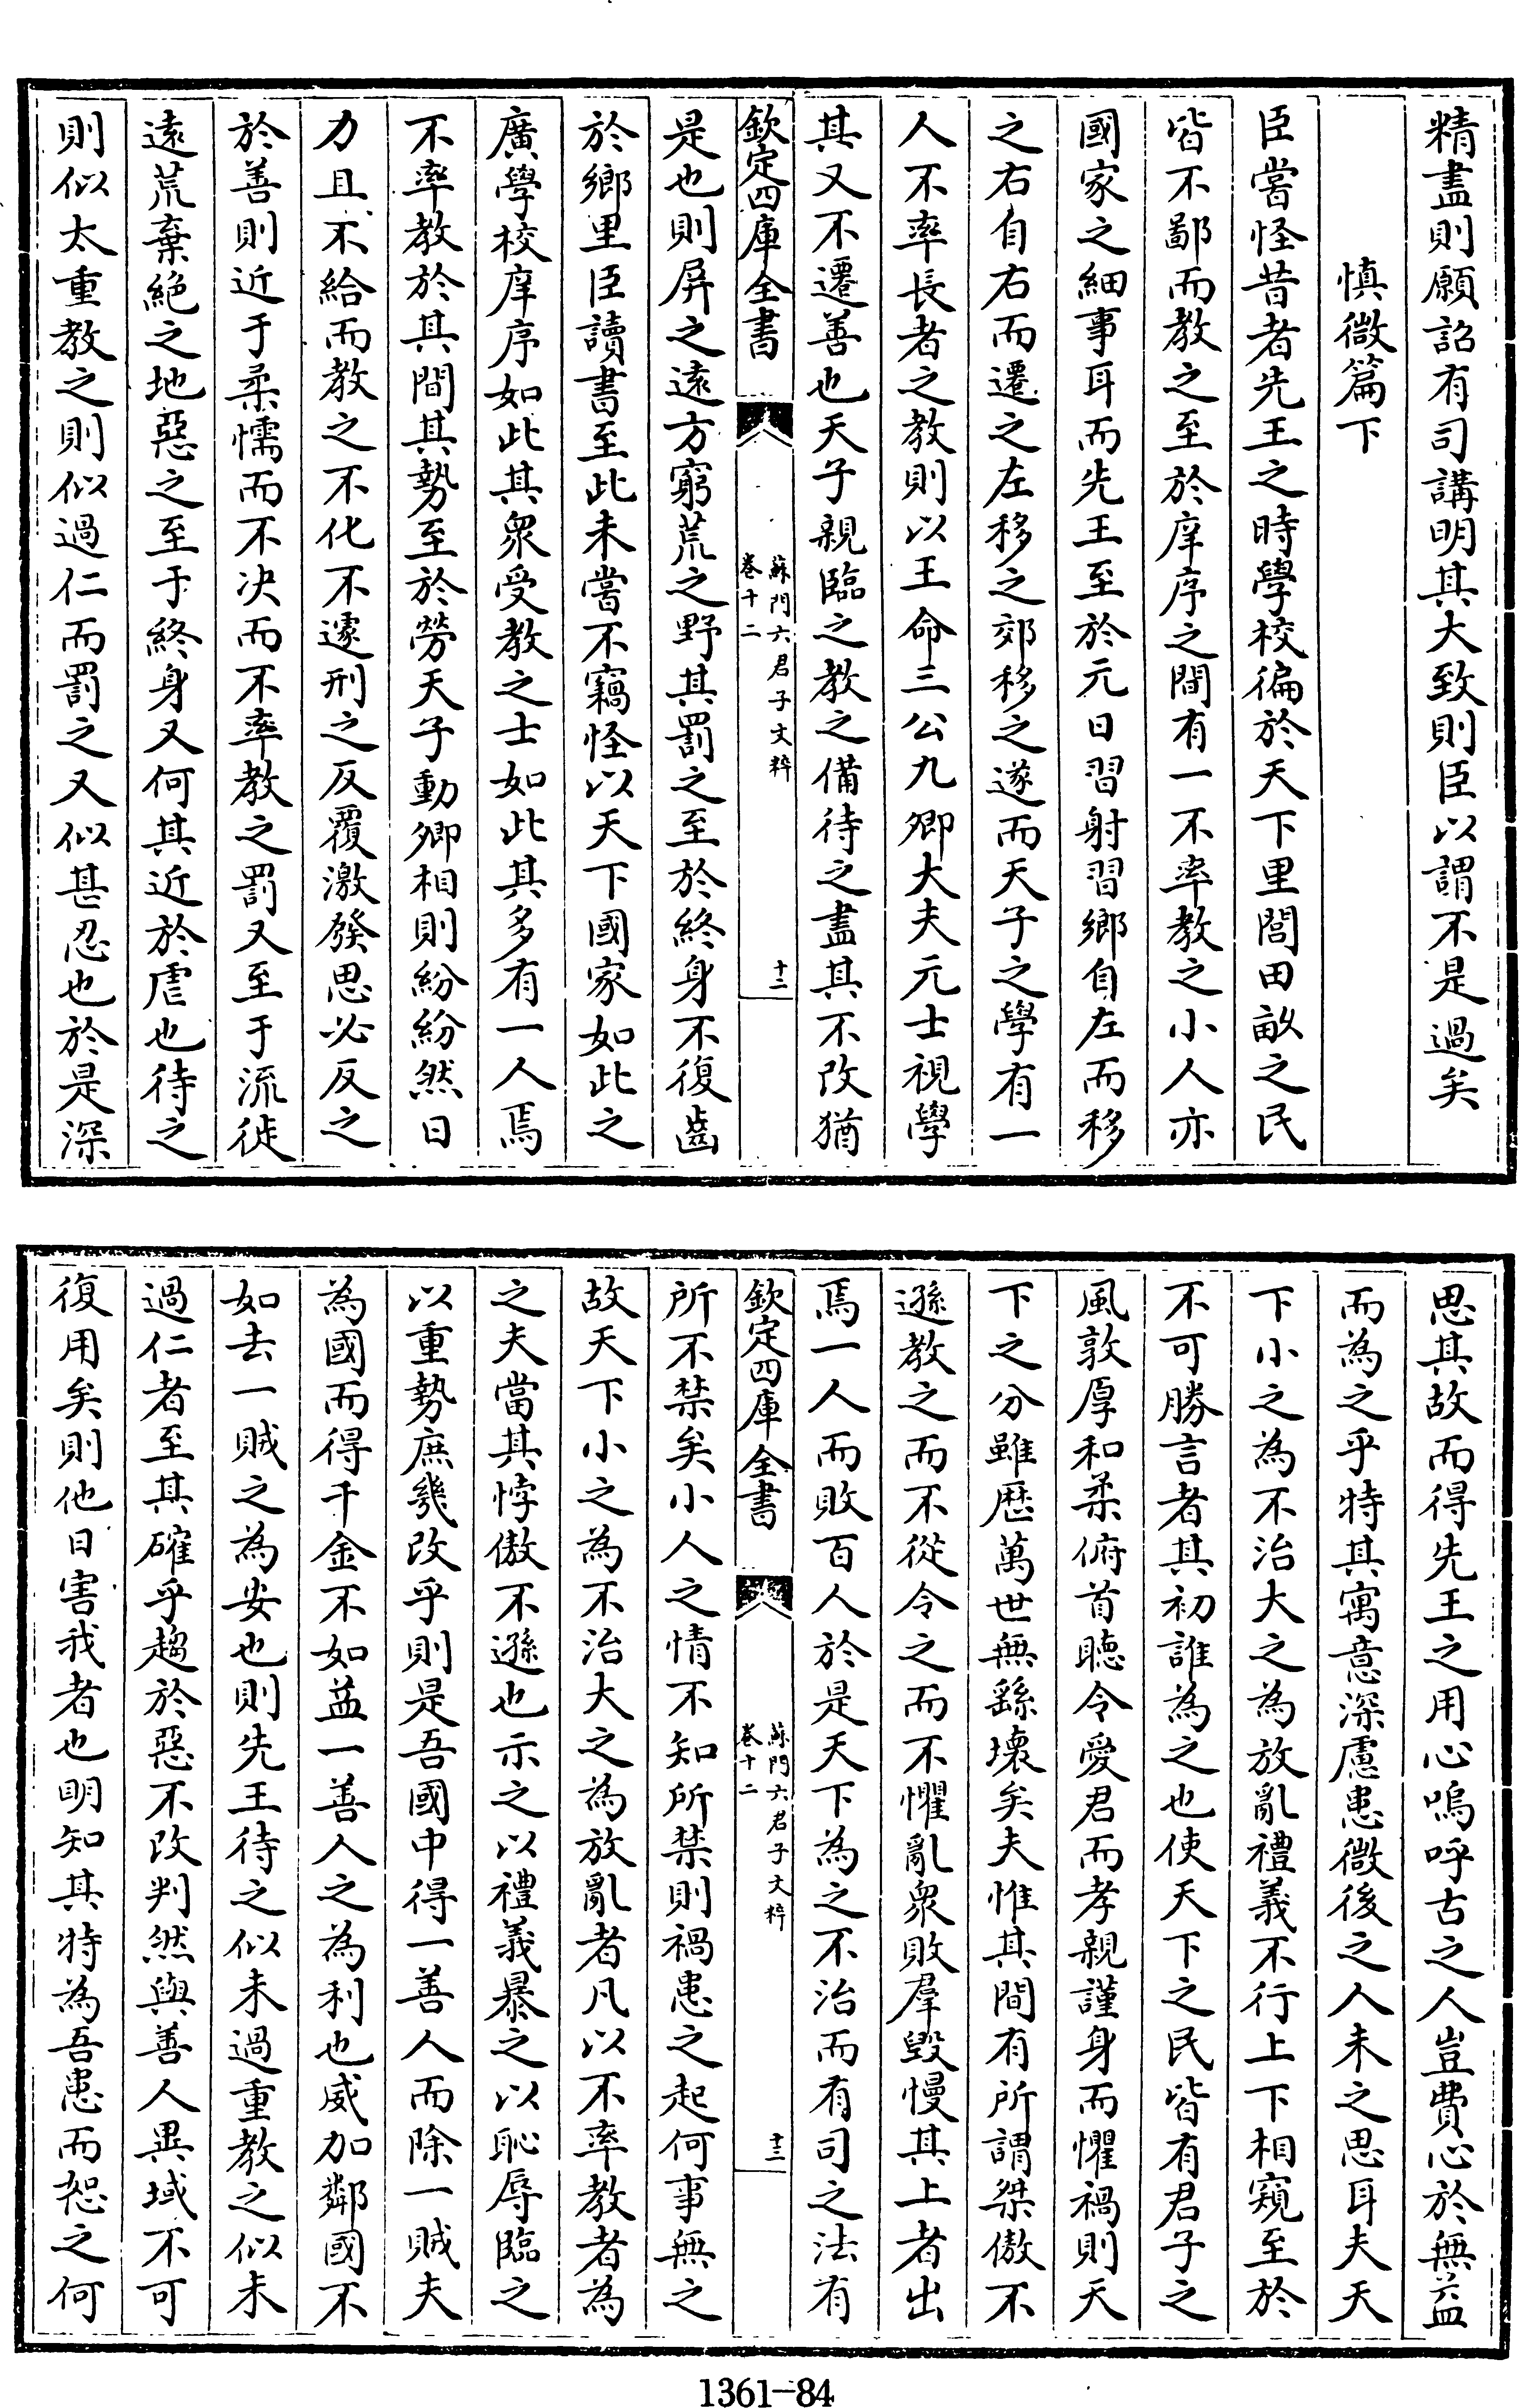 精盡則願詔有司講明其大致則臣以謂不是過矣
慎微篇下
臣嘗怪昔者先王之時學校徧於天下里閭田畝之民
皆不鄙而教之至於庠序之間有一不率教之小人亦
國家之細事耳而先王至於元日習射習鄉自左而移
之右自右而遷之左移之郊移之遂而天子之學有一
人不率長者之教則以王命三公九卿大夫元士視學
其又不遷善也天子親臨之教之備待之盡其不改猶
欽定四庫全書
蘇門六君子文粹
卷十二
十二
是也則屏之遠方窮荒之野其罰之至於終身不復齒
於鄉里臣讀書至此未嘗不竊怪以天下國家如此之
廣學校庠序如此其衆受教之士如此其多有一人焉
不率教於其間其勢至於勞天子動卿相則紛紛然日
力且不給而教之不化不遽刑之反覆激發思必反之
於善則近于柔懦而不决而不率教之罰又至于流徙
遠荒棄絶之地惡之至于終身又何其近於虐也待之
則似太重教之則似過仁而罰之又似甚忍也於是深
思其故而得先王之用心嗚呼古之人豈費心於無益
而為之乎特其寓意深慮患微後之人未之思耳夫天
下小之為不治大之為放亂禮義不行上下相窺至於
不可勝言者其初誰為之也使天下之民皆有君子之
風敦厚和柔俯首聽令愛君而孝親謹身而懼禍則天
下之分雖歴萬世無繇壞矣夫惟其間有所謂桀傲不
遜教之而不從令之而不懼亂衆敗羣毁慢其上者出
焉一人而敗百人於是天下為之不治而有司之法有
欽定四庫全書
蘇門六君子文粹
卷十二
十三
所不禁矣小人之情不知所禁則禍患之起何事無之
故天下小之為不治大之為放亂者凡以不率教者為
之夫當其悖傲不遜也示之以禮義暴之以恥辱臨之
以重勢庶幾改乎則是吾國中得一善人而除一賊夫
為國而得千金不如益一善人之為利也威加鄰國不
如去一賊之為安也則先王待之似未過重教之似未
過仁者至其確乎趨於惡不改判然與善人異域不可
復用矣則他日害我者也明知其特為吾患而恕之何
1361-84